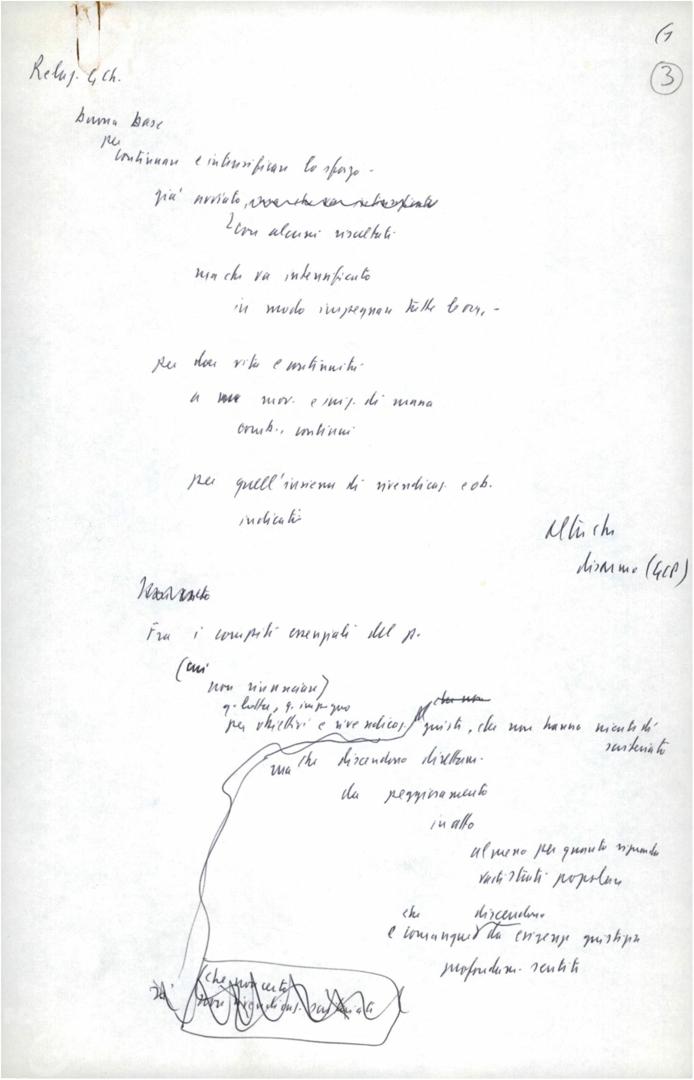 G
3
Relaz. G.Ch.
buona base
per
continuare e intensificare lo sforzo -
già avviato,
con alcuni risultati
ma che va intensificato
in modo impegnare tutte le org. -
per dare vita e continuità
a mov. e iniz. di massa
comb., continui
per quell'insieme di rivendicaz. e ob.
indicati
altre che
disarmo (GCP)
Fra i compiti essenziali del p.
(cui
non rinunciare)
q. lotta, q. impegno
per obiettivi e rivendicaz. giusti, che non hanno niente di
ma che discendono direttam.
da peggioramento
in atto
almeno per quanto riguarda
vasti strati popolari
che discendono
e comunque da esigenze giustiss.
profondam. sentite
che non certo
sono rivendicaz.